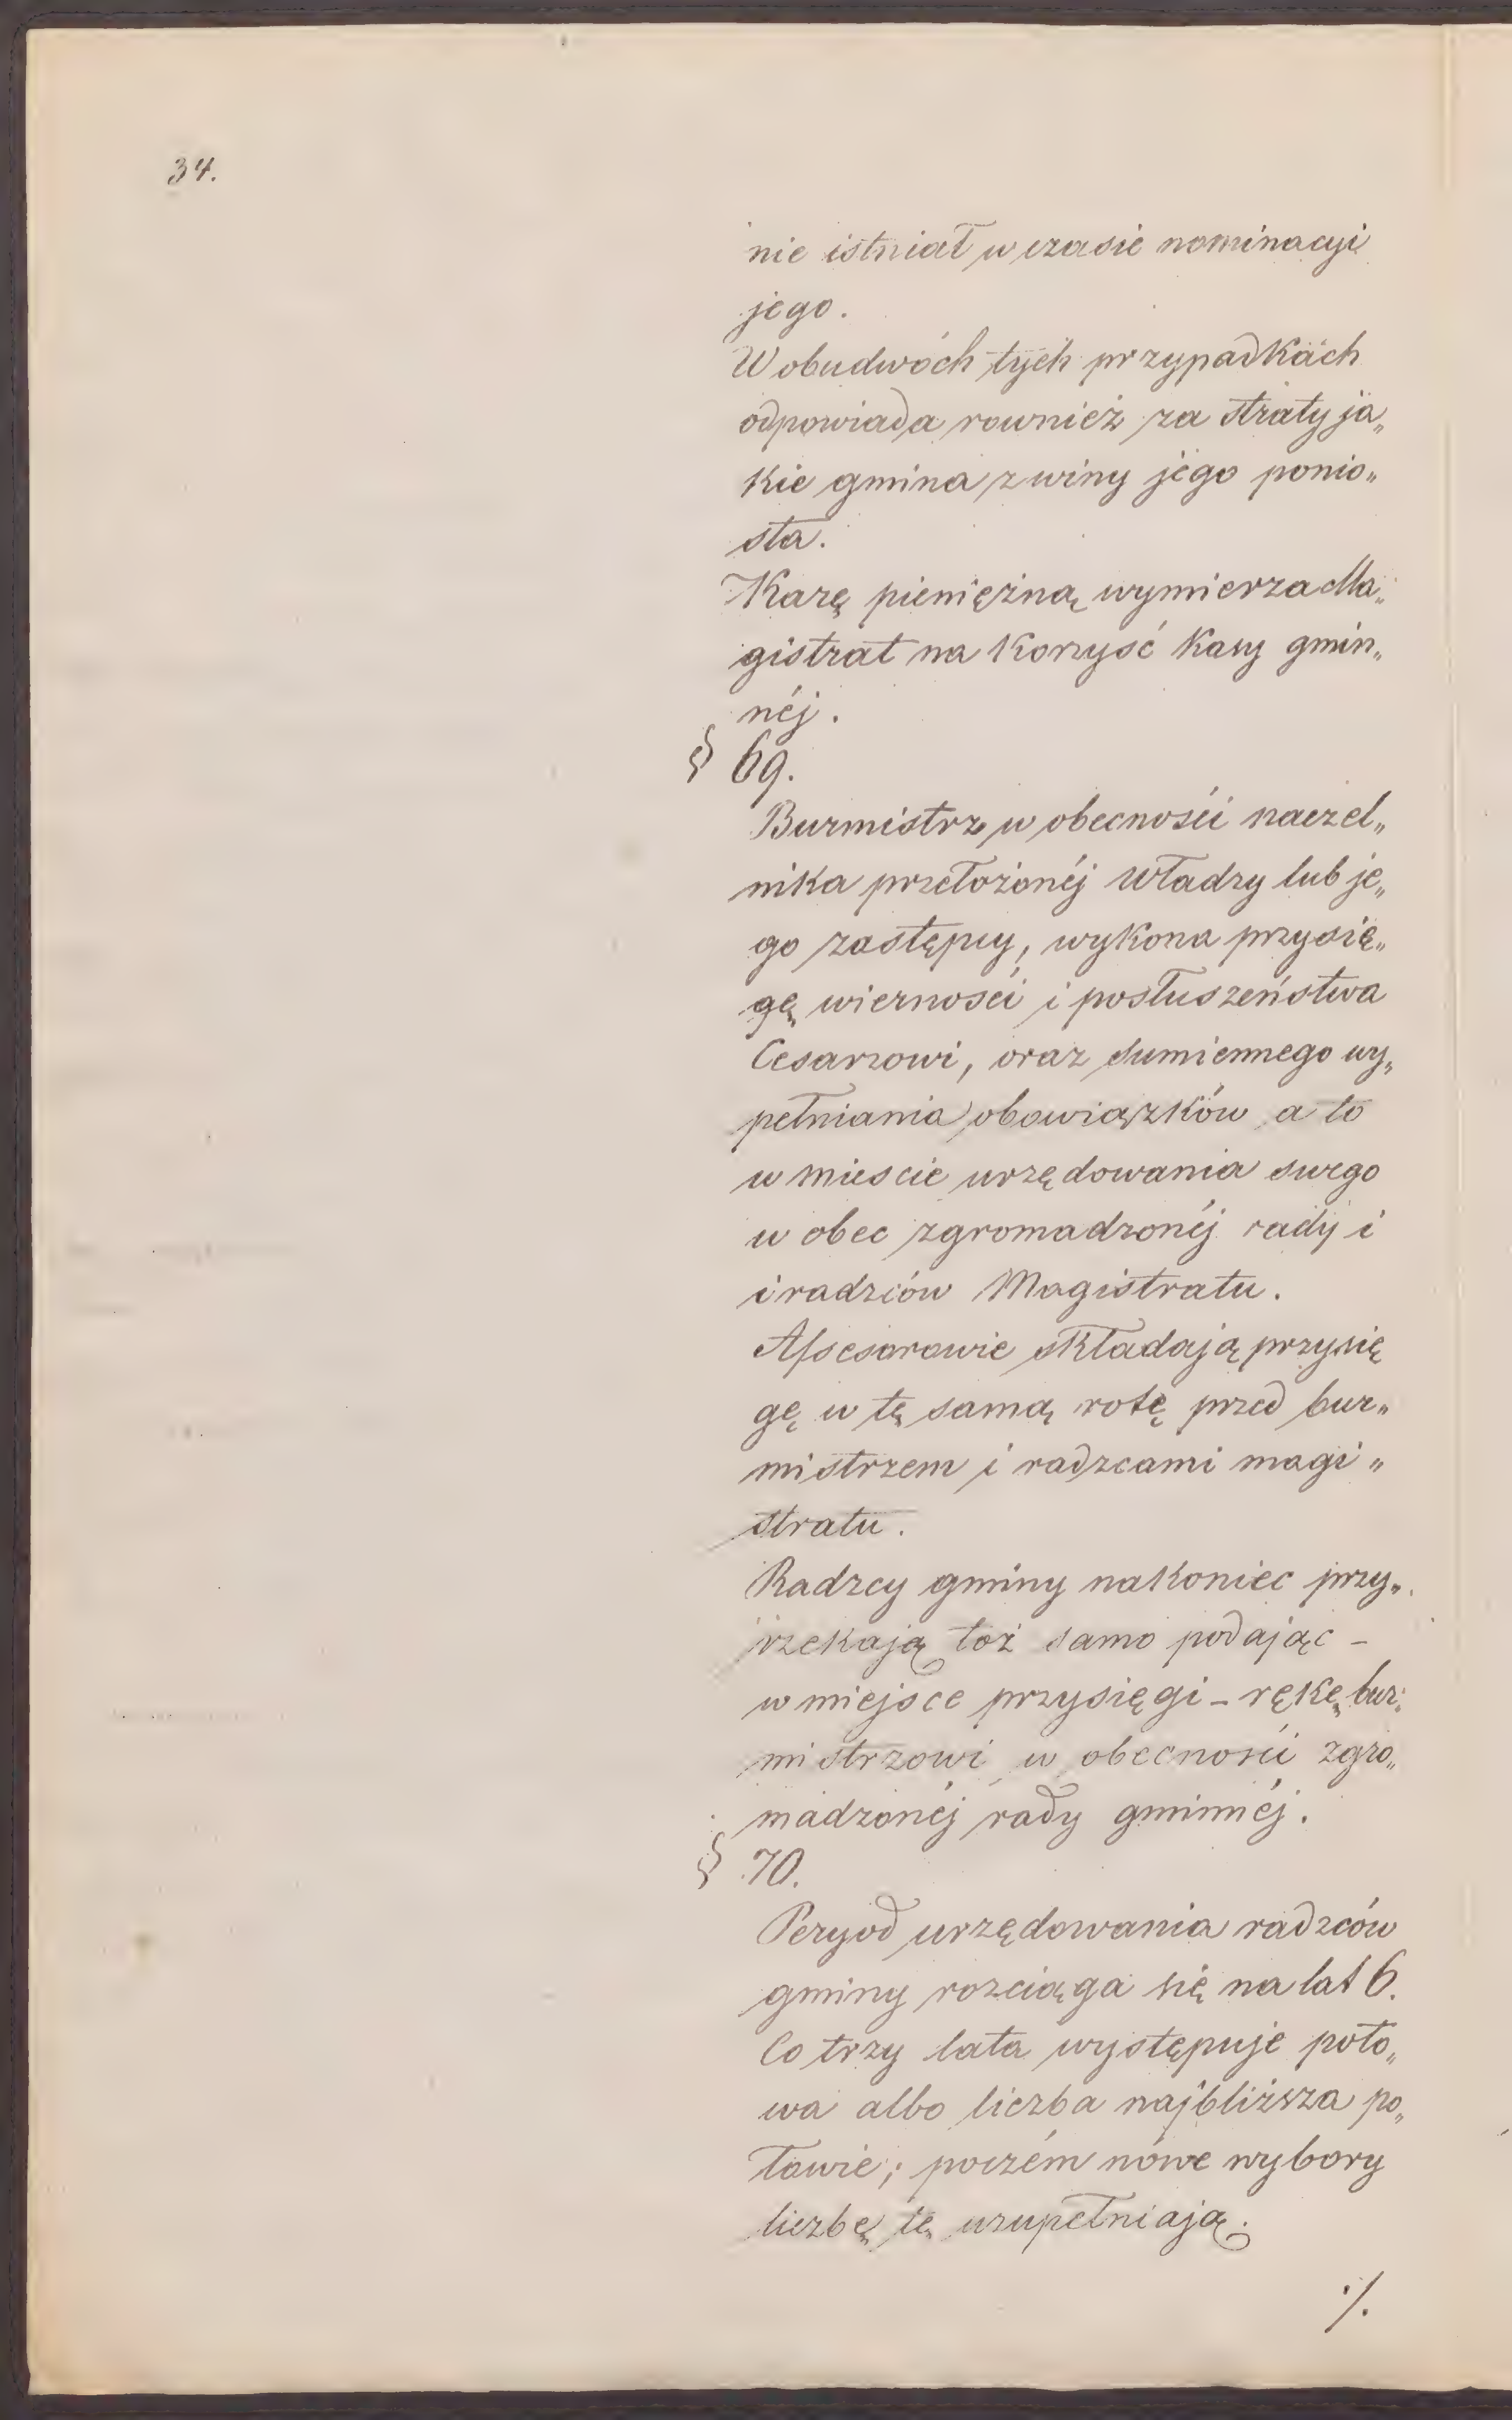 34.
nie istniał w czasie nominacyi
jego.
W obudwóch tych przypadkach
odpowiada rownież za straty ja„
kie gmina z winy jego ponio„
sła.
Karę pieniężną wymierza Ma„
gistrat na korzyść kasy gmin„
néj.
§ 69.
Burmistrz w obecnośći naczel„
nika przełożonéj władzy lub je„
go zastępcy, wykona przysię„
gę wiernosći i posłuszeństwa
Cesarzowi, oraz sumiennego wy„
pełniania obowiązków a to
w miescie urzędowania swego
w obec zgromadzonéj rady i
i radzców Magistratu.
Assesorowie składają przysię
gę w tę samą rotę przed bur„
mistrzem i radzcami magi„
stratu.
Radzcy gminy nakoniec przy„
rzekają toż samo podając –
w miejsce przysięgi – rękę bur„
mistrzowi w obecnośći zgro„
madzonéj rady gminnéj.
§ 70.
Peryod urzędowania radzców
gminy rozciąga się na lat 6.
Co trzy lata występuje poło„
wa albo liczba najbliższa po„
łowie; poczém nówe wybory
liczbę tę uzupełniają.
·/.